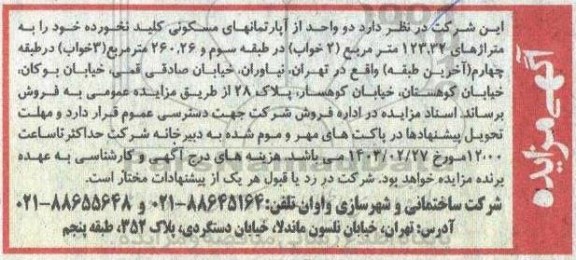 آگهی مزایده
این شرکت در نظر دارد دو واحد از آپارتمانهای مسکونی کلید نخورده خود را به
متراژهای ۱۲۳.۳۲ متر مربع (۲ خواب) در طبقه سوم و ۲۶۰.۲۶ مترمربع (۳خواب) درطبقه
چهارم(آخرین طبقه) واقع در تهران، نیاوران، خیابان صادقی قمی، خیابان بوکان،
خیابان کوهستان، خیابان کوهسار، پلاک ۲۸ از طریق مزایده عمومی به فروش
برساند. اسناد مزایده در اداره فروش شرکت جهت دسترسی عموم قرار دارد و مهلت
تحویل پیشنهادها در پاکت های مهر و موم شده به دبیرخانه شرکت حداکثر تا ساعت
۱۲:۰۰مورخ ۱۴۰۳/۰۲/۲۷ می باشد. هزینه های درج آگهی و کارشناسی به عهده
برنده مزایده خواهد بود. شرکت در رد یا قبول هر یک از پیشنهادات مختار است.
شرکت ساختمانی و شهرسازی واوان تلفن: ۸۸۶۴۵۱۶۴-۰۲۱ و ۸۸۶۵۵۶۴۸-۰۲۱
آدرس: تهران، خیابان نلسون ماندلا، خیابان دستگردی، پلاک ۳۵۲، طبقه پنجم